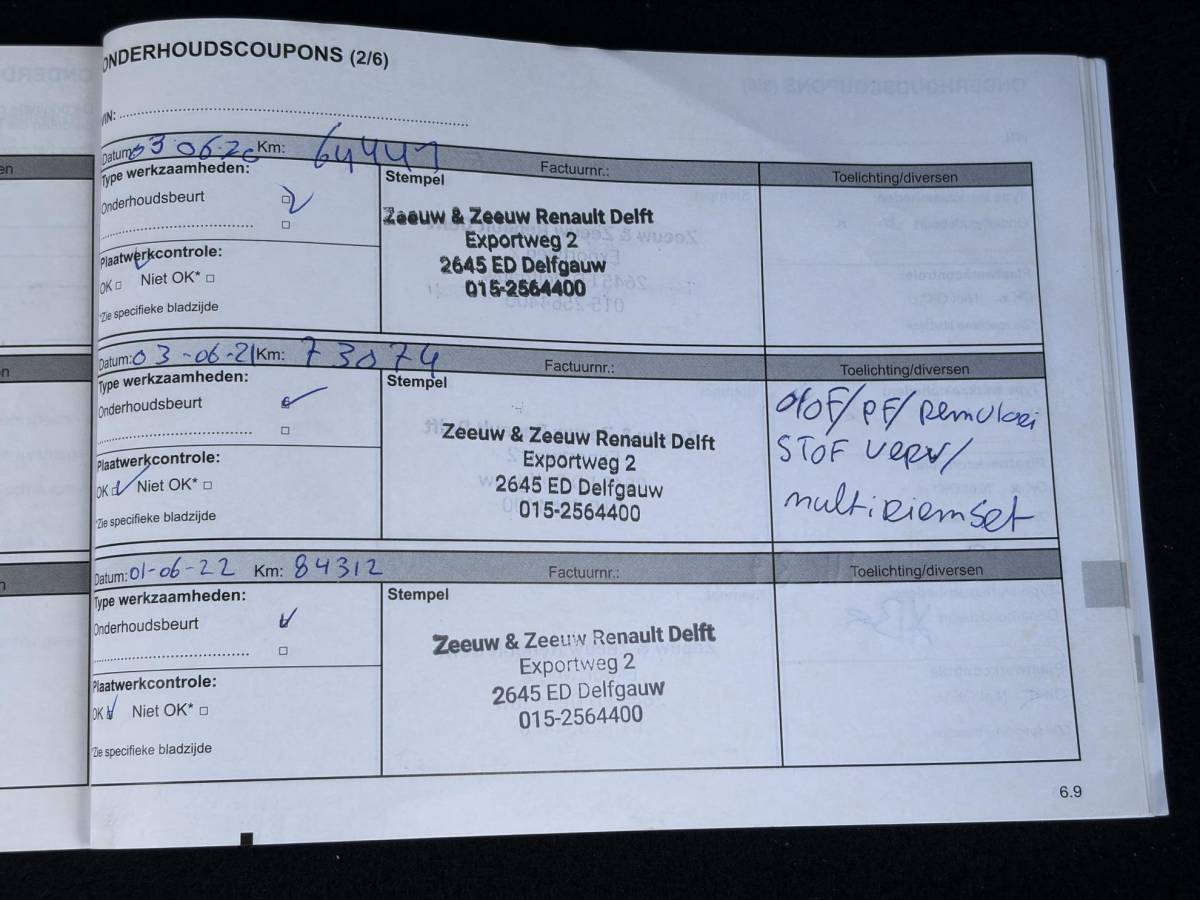 ONDERHOUDSCOUPONS (2/6)
VIN:
Datum: 03-06-20 Km: 64447 Factuurnr.: Toelichting/diversen
Type werkzaamheden: Stempel
Onderhoudsbeurt
Zeeuw & Zeeuw Renault Delft
Exportweg 2
2645 ED Delfgauw
015-2564400
Plaatwerkcontrole:
OK Niet OK*
*Zie specifieke bladzijde
Datum: 03-06-21 Km: 73074 Factuurnr.: Toelichting/diversen
Type werkzaamheden: Stempel
Onderhoudsbeurt
Zeeuw & Zeeuw Renault Delft
Exportweg 2
2645 ED Delfgauw
015-2564400
Plaatwerkcontrole:
OK Niet OK*
*Zie specifieke bladzijde
PF/ Remvloei
STOF VERV/
multiriemset
Datum: 01-06-22 Km: 84312 Factuurnr.: Toelichting/diversen
Type werkzaamheden: Stempel
Onderhoudsbeurt
Zeeuw & Zeeuw Renault Delft
Exportweg 2
2645 ED Delfgauw
015-2564400
Plaatwerkcontrole:
OK Niet OK*
*Zie specifieke bladzijde
6.9